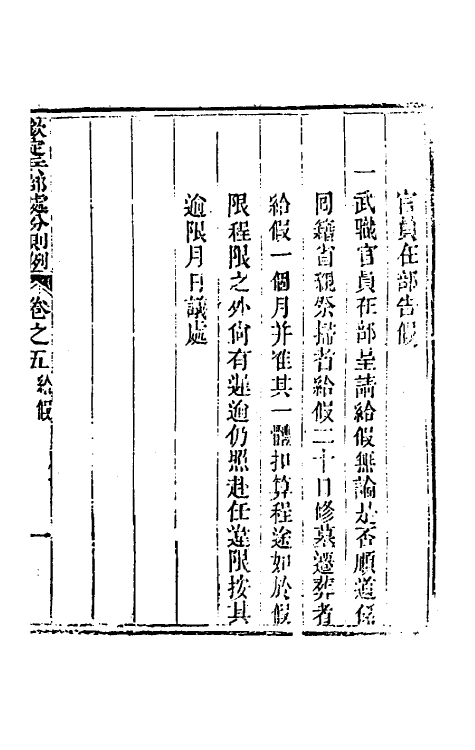 官員在部告假
一武職官員在部呈請給假無論是否順道係
回籍省親祭掃者給假二十日修墓遷葬者
給假一個月并准其一體扣算程途如於假
限程限之外尚有遲逾仍照赴任違限按其
逾限月日議處
欽定兵部處分則例 卷之五 給假 一